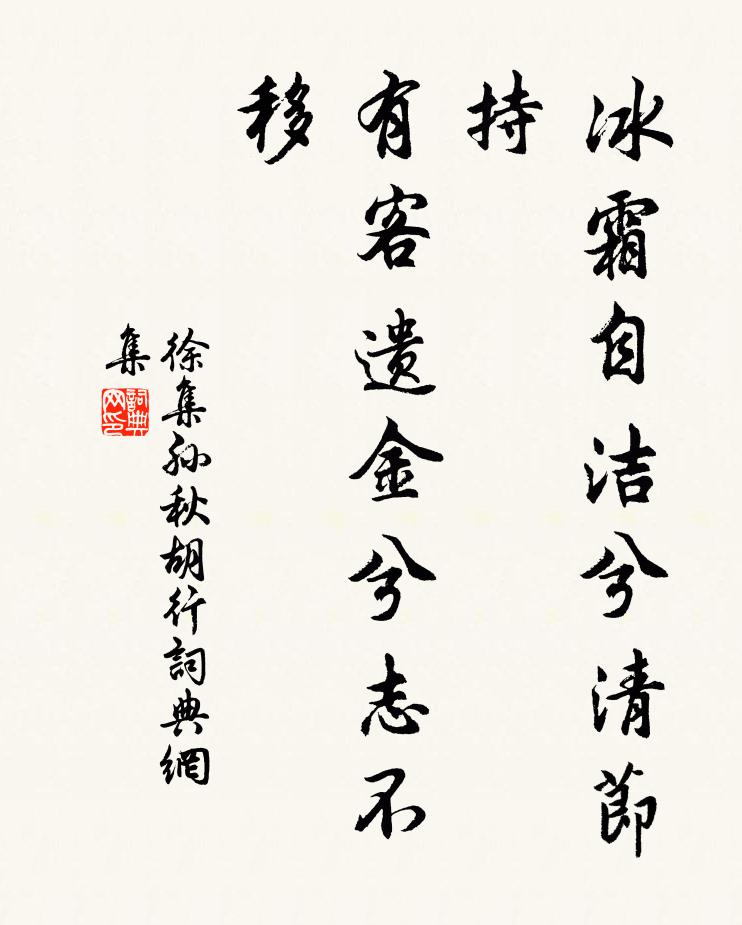 冰霜自洁兮清節
持
有客遗金兮志不
移
徐集孙秋胡行詞典網
集
詞典网印